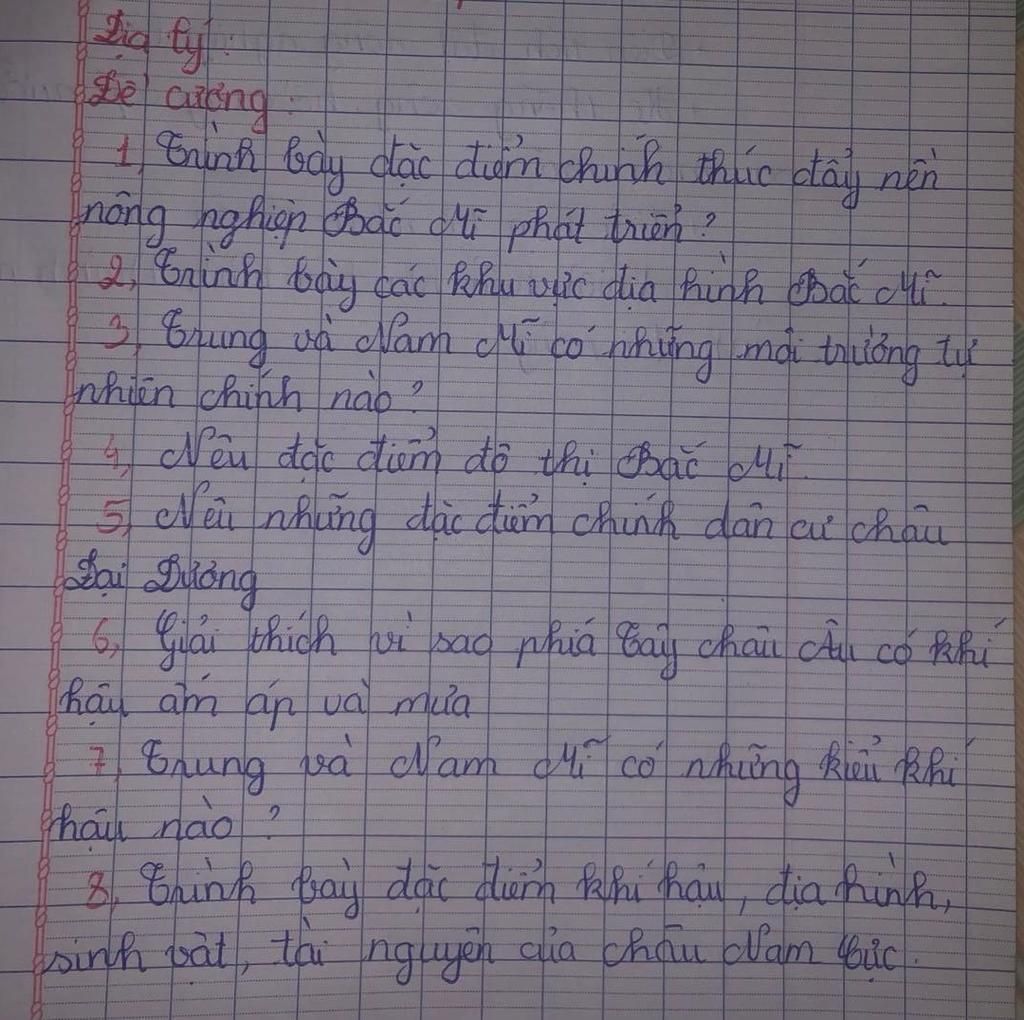 Địa lý:
Đề cương:
1, Trình bày đặc điểm chính thúc đẩy nền
nông nghiệp Bắc Mĩ phát triển?
2, Trình bày các khu vực địa hình Bắc Mĩ.
3, Trung và Nam Mĩ có những môi trường tự
nhiên chính nào?
4, Nêu đặc điểm đô thị Bắc Mĩ.
5, Nêu những đặc điểm chính dân cư châu
Đại Dương
6, Giải thích vì sao phía Tây châu Âu có khí
hậu ấm áp và mưa
7, Trung và Nam Mĩ có những kiểu khí
hậu nào?
8, Trình bày đặc điểm khí hậu, địa hình,
sinh vật, tài nguyên của châu Nam Cực.